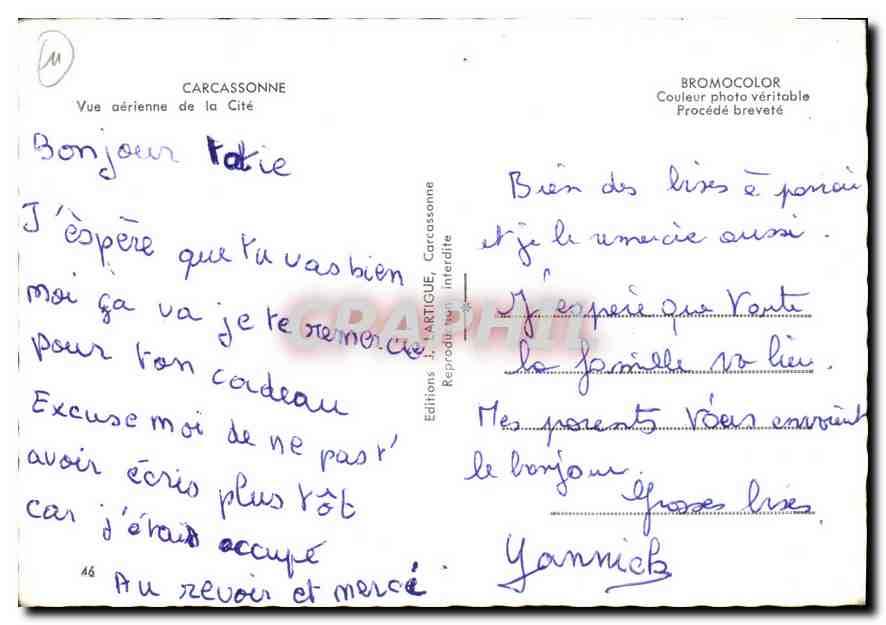 M
CARCASSONNE
Vue aérienne de la Cité
Bonjour tatie
J'èspère que tu vas bien
moi ça va je te remercie
pour ton cadeau
Excuse moi de ne pas t'
avoir écris plus tôt
car j'étais occupé
46
Au revoir et merci
Editions J. LARTIGUE, Carcassonne
Reproduction interdite
CPAPHIL
BROMOCOLOR
Couleur photo véritable
Procédé breveté
Bien des bises à parrain
et je le remercie aussi.
J'espère que toute
la famille va bien.
Mes parents vous envoient
le bonjour.
Grosses bises
Yannick